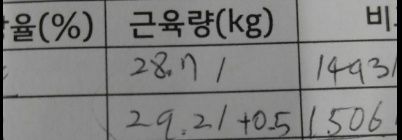 율(%) 근육량(kg) 비
28.71 1493
29.21 +0.5 1506